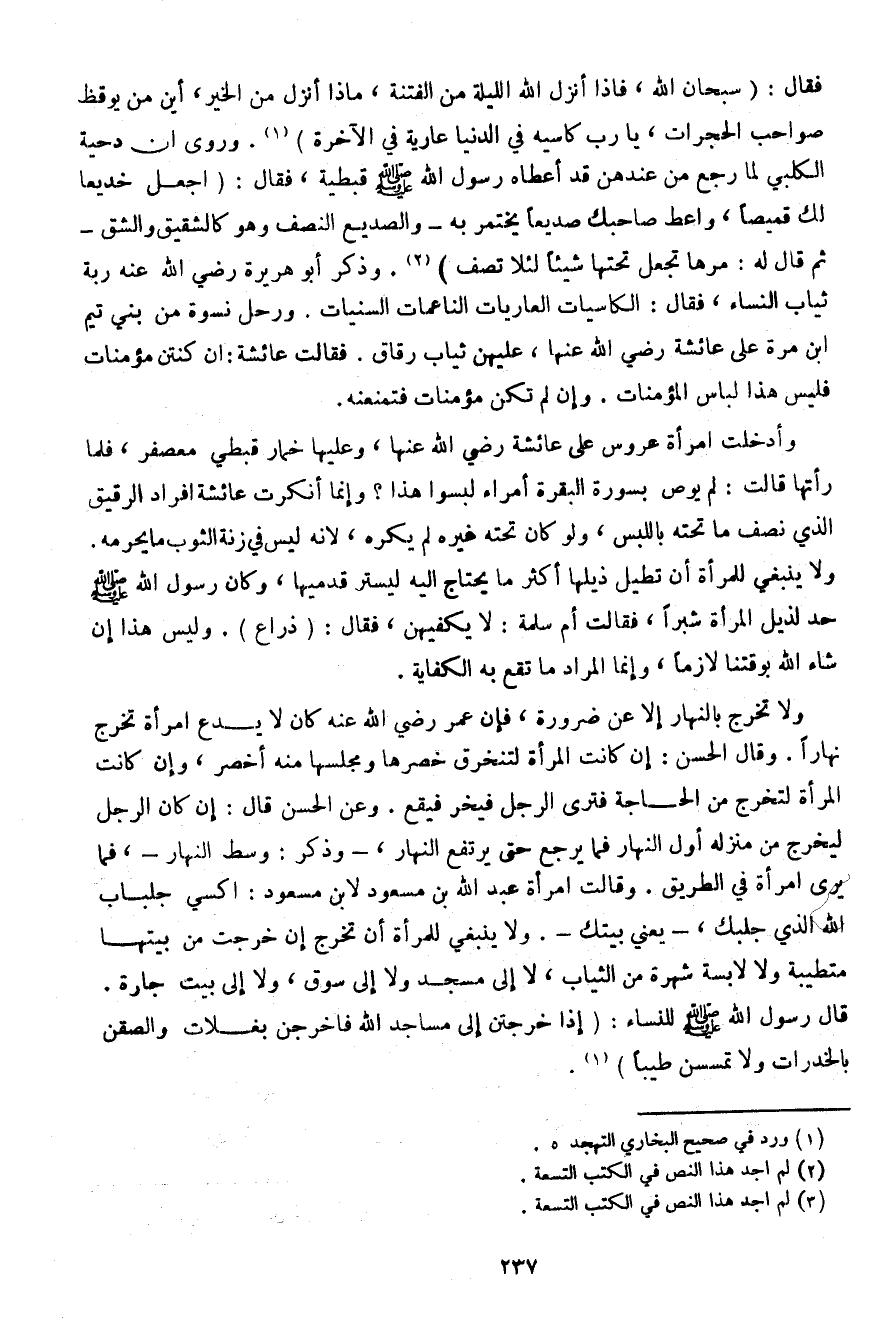 فقال : ( سبحان الله ، فاذا أنزل الله الليلة من الفتنة ، ماذا أنزل من الخير، أين من يوقظ
صواحب الحجرات ، يا رب كاسيه في الدنيا عارية في الآخرة ) (١) . وروى ان دحية
الكلبي لما رجع من عندهن قد أعطاه رسول الله ﷺ قبطية ، فقال : ( اجعل خديعا
لك قميصاً ، واعط صاحبك صديعاً يختمر به ــ والصديع النصف وهو كالشقيق والشق ــ
ثم قال له : مرها تجعل تحتها شيئاً لئلا تصف ) (٢) . وذكر أبو هريرة رضي الله عنه ربة
ثياب النساء ، فقال : الكاسيات العاريات الناعمات السنيات . ورحل نسوة من بني تيم
ابن مرة على عائشة رضي الله عنها ، عليهن ثياب رقاق . فقالت عائشة : ان كنتن مؤمنات
فليس هذا لباس المؤمنات . وإن لم تكن مؤمنات فتمنعنه.
وأدخلت امرأة عروس على عائشة رضي الله عنها ، وعليها خمار قبطي معصفر ، فلما
رأتها قالت : لم يوص بسورة البقرة أمراء لبسوا هذا ؟ وإنما أنكرت عائشة افراد الرقيق
الذي نصف ما تحته باللبس ، ولو كان تحته غيره لم يكره ، لانه ليس في زنة الثوب ما يحرمه.
ولا ينبغي للمرأة أن تطيل ذيلها أكثر ما يحتاج اليه ليستر قدميها ، وكان رسول الله ﷺ
حد لذيل المرأة شبراً ، فقالت أم سلمة : لا يكفيهن ، فقال : ( ذراع ) . وليس هذا إن
شاء الله بوقتنا لازماً ، وإنما المراد ما تقع به الكفاية .
ولا تخرج بالنهار إلا عن ضرورة ، فإن عمر رضي الله عنه كان لا يدع امرأة تخرج
نهاراً . وقال الحسن : إن كانت المرأة لتنخرق خصرها ومجلسها منه أخصر ، وإن كانت
المرأة لتخرج من الحاجة فترى الرجل فيخر فيقع . وعن الحسن قال : إن كان الرجل
ليخرج من منزله أول النهار فما يرجع حتى يرتفع النهار ، ــ وذكر : وسط النهار ــ ، فما
يرى امرأة في الطريق . وقالت امرأة عبد الله بن مسعود لابن مسعود : اكسي جلباب
الله الذي جلبك ، ــ يعني بيتك ــ . ولا ينبغي للمرأة أن تخرج إن خرجت من بيتها
متطيبة ولا لابسة شهرة من الثياب ، لا إلى مسجد ولا إلى سوق ، ولا إلى بيت جارة .
قال رسول الله ﷺ للنساء : ( إذا خرجتن إلى مساجد الله فاخرجن بغلات والصقن
بالخدرات ولا تمسسن طيباً ) (١) .
(١) ورد في صحيح البخاري التهجد ٥ .
(٢) لم اجد هذا النص في الكتب التسعة .
(٣) لم اجد هذا النص في الكتب التسعة .
٢٣٧